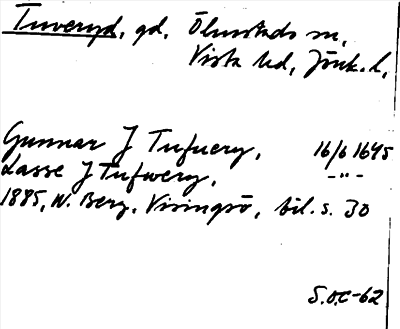 Tuveryd, gd. Ölmstads sn,
Vista hd, Jönk. l,
Gunnar J Tufuery, 16/6 1645
Lasse J Tufwery, -"-
1885, W. Berg, Visingsö, bil. s. 30
S.O.C-62